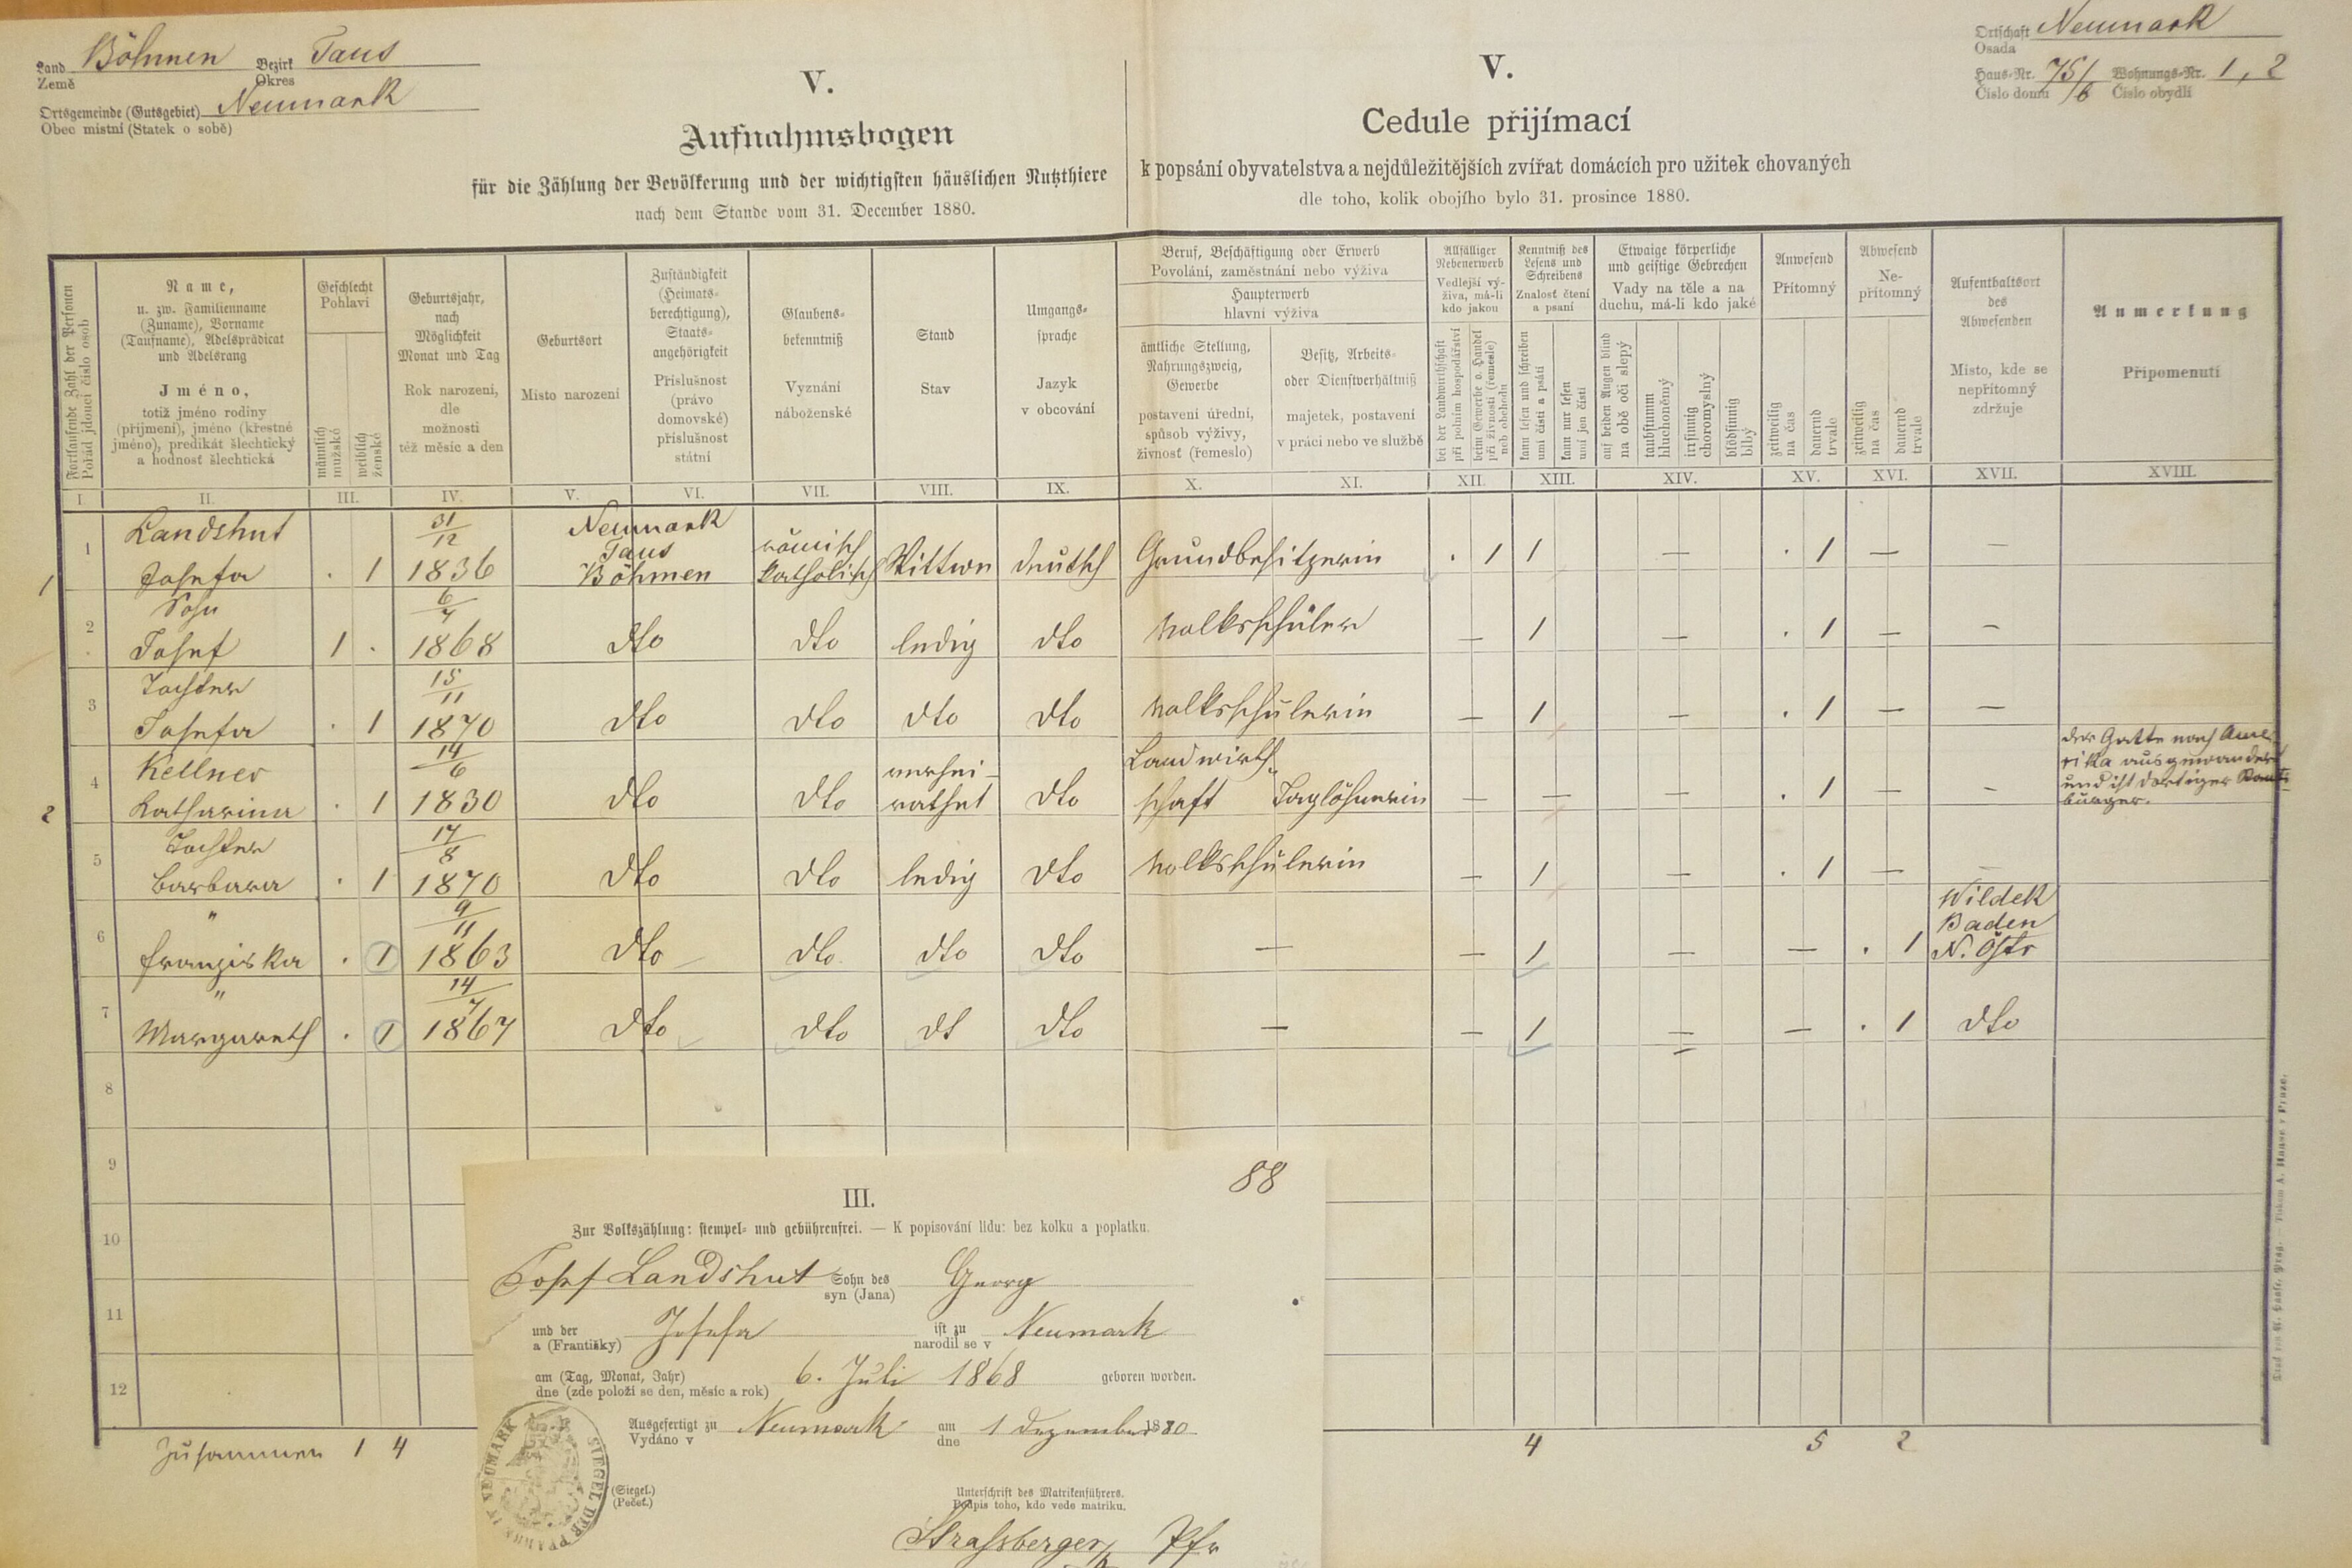 Land Böhmen Bezirk Taus
Země Okres
Ortsgemeinde (Gutsgebiet) Neumark
Obec místní (Statek o sobě)
V.
Aufnahmsbogen
für die Zählung der Bevölkerung und der wichtigsten häuslichen Nutzthiere
nach dem Stande vom 31. December 1880.
V.
Cedule přijímací
k popsání obyvatelstva a nejdůležitějších zvířat domácích pro užitek chovaných
dle toho, kolik obojího bylo 31. prosince 1880.
Ortschaft Neumark
Osada
Haus-Nr. 75/6 Wohnungs-Nr. 1, 2
Číslo domu Číslo obydlí
Fortlaufende Zahl der Personen
Pořád jdoucí číslo osob
Name,
u. zw. Familienname
(Zuname), Vorname
(Taufname), Adelsprädicat
und Adelsrang
Jméno,
totiž jméno rodiny
(příjmení), jméno (křestné
jméno), predikát šlechtický
a hodnost šlechtická
Geschlecht
Pohlaví
männlich
mužské
weiblich
ženské
Geburtsjahr,
nach
Möglichkeit
Monat und Tag
Rok narození,
dle
možnosti
též měsíc a den
Geburtsort
Místo narození
Zuständigkeit
(Heimats-
berechtigung),
Staats-
angehörigkeit
Příslušnost
(právo
domovské)
příslušnost
státní
Glaubens-
bekenntniß
Vyznání
náboženské
Stand
Stav
Umgangs-
sprache
Jazyk
v obcování
Beruf, Beschäftigung oder Erwerb
Povolání, zaměstnání nebo výživa
Haupterwerb
hlavní výživa
ämtliche Stellung,
Nahrungszweig,
Gewerbe
postavení úřední,
spůsob výživy,
živnost (řemeslo)
Besitz, Arbeits-
oder Dienstverhältniß
majetek, postavení
v práci nebo ve službě
Allfälliger
Nebenerwerb
Vedlejší vý-
živa, má-li
kdo jakou
bei der Landwirthschaft
při polním hospodářství
beim Gewerbe o. Handel
při živnosti (řemesle)
neb obchodu
Kenntniß des
Lesens und
Schreibens
Znalost čtení
a psaní
kann lesen und schreiben
umí čísti a psáti
kann nur lesen
umí jen čísti
Etwaige körperliche
und geistige Gebrechen
Vady na těle a na
duchu, má-li kdo jaké
auf beiden Augen blind
na obě oči slepý
taubstumm
hluchoněmý
irrsinnig
choromyslný
blödsinnig
blbý
Anwesend
Přítomný
zeitweilig
na čas
dauernd
trvale
Abwesend
Ne-
přítomný
zeitweilig
na čas
dauernd
trvale
Aufenthaltsort
des
Abwesenden
Místo, kde se
nepřítomný
zdržuje
Anmerkung
Připomenutí
I. II. III. IV. V. VI. VII. VIII. IX. X. XI. XII. XIII. XIV. XV. XVI. XVII. XVIII.
Landshut 31/12 Neumark
1 Taus römisch
1 Josefa . 1 1836 Böhmen katholisch Wittwe deutsch Grundbesitzerin . 1 1 — . 1 — —
Sohn 6/7
2 Josef 1 . 1868 dto dto ledig dto Volksschüler — 1 — . 1 — —
Tochter 15/11
3 Josefa . 1 1870 dto dto dto dto Volksschülerin — 1 — . 1 — —
Kellner 14/6 verhei- Landwirth- der Gatte nach Ame-
rika ausgewandert
4 2 Katharina . 1 1830 dto dto rathet dto schaft Taglöhnerin — — — . 1 — — und ist dortiger
bürger.
Tochter 17/8
5 Barbara . 1 1870 dto dto ledig dto Volksschülerin — 1 — . 1 — —
" 9/11 Wildek
Baden
6 Franziska . 1 1863 dto dto dto dto — — 1 — — . 1 N. Östr
" 14/7
7 Margareth . 1 1867 dto dto dt dto — — 1 — — . 1 dto
8
9
10
11
12
Zusammen 1 4 4 5 2
88
III.
Zur Volkszählung: stempel- und gebührenfrei. — K popisování lidu: bez kolku a poplatku.
Josef Landshut Sohn des Georg
syn (Jana)
und der Josefa ist zu Neumark
a (Františky) narodil se v
am (Tag, Monat, Jahr) 6. Juli 1868 geboren worden.
dne (zde položí se den, měsíc a rok)
Ausgefertigt zu Neumark am 1 Dezember 1880
Vydáno v dne
SIEGEL DER PFARRE IN NEUMARK
(Siegel.)
(Pečeť.)
Unterschrift des Matrikenführers.
Podpis toho, kdo vede matriku.
Strassberger Pfr